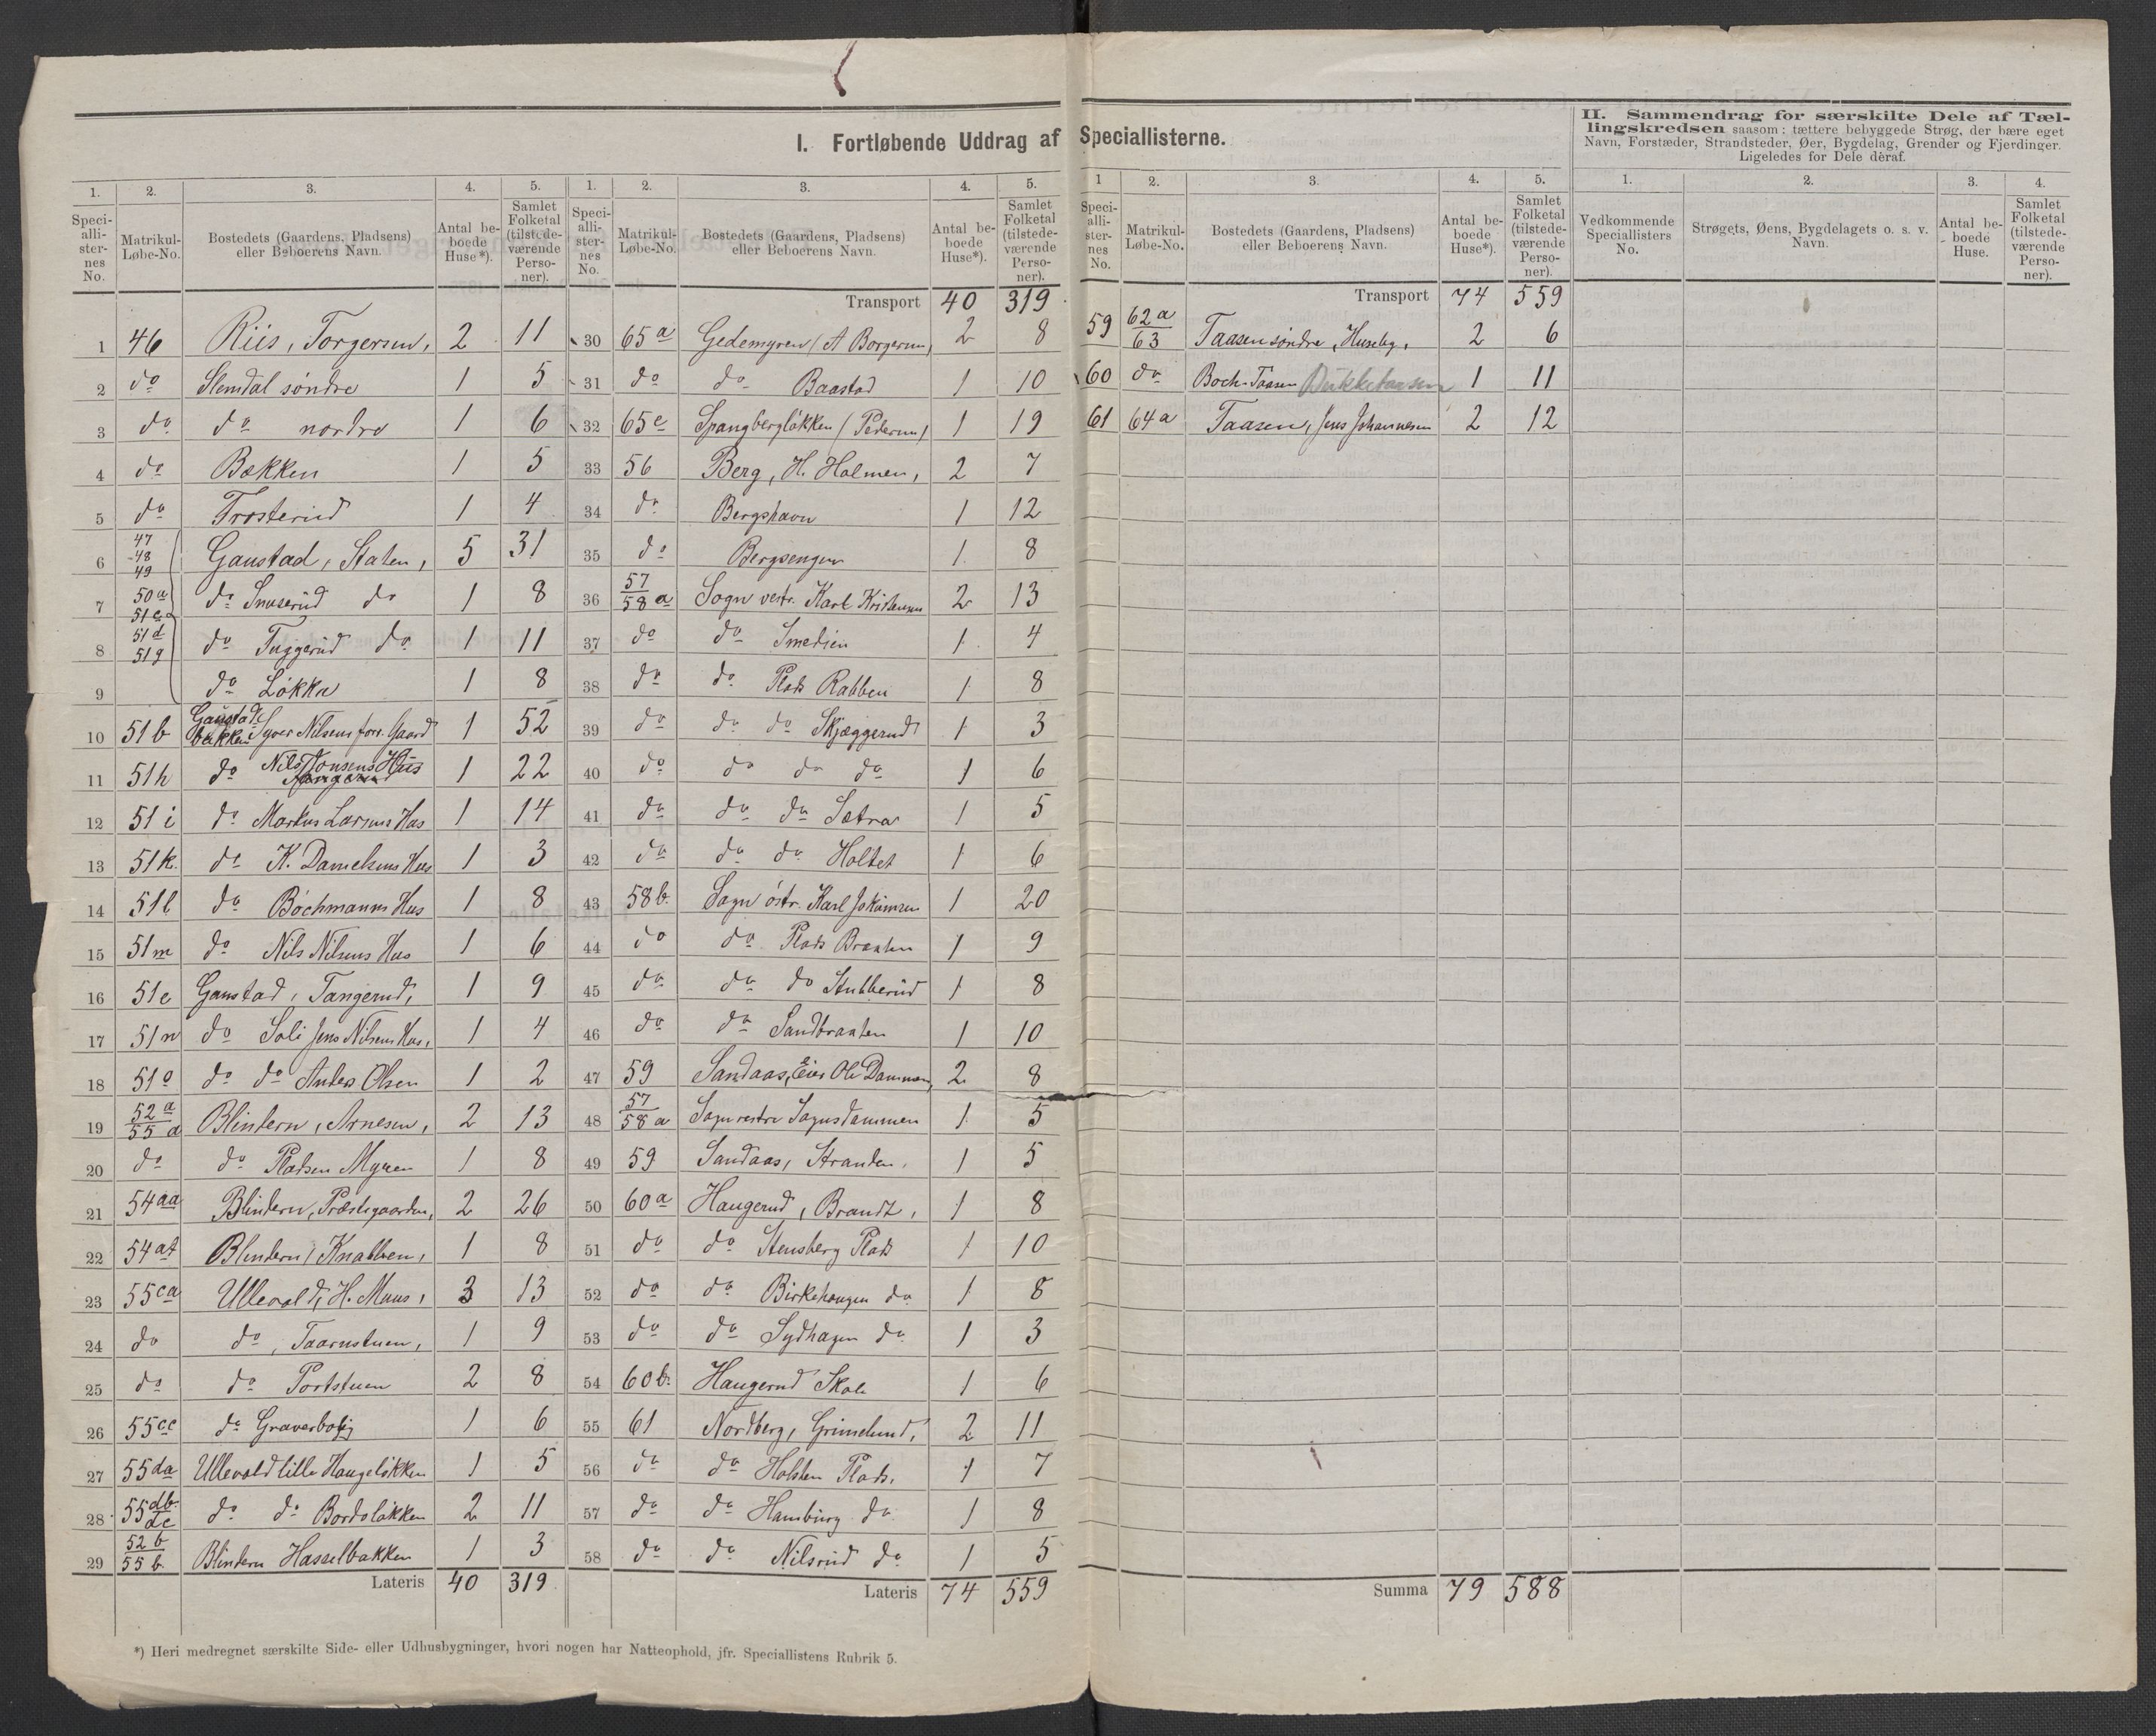 I. Fortløbende Uddrag af Speciallisterne.
II. Sammendrag for særskilte Dele af Tællingskredsen saasom: tættere bebyggede Strøg, der bære eget
Navn, Forstæder, Strandsteder, Øer, Bygdelag, Grender og Fjerdinger.
Ligeledes for Dele deraf.
1. 2. 3. 4. 5.
Speciallisternes No. Matrikul-Løbe-No. Bostedets (Gaardens, Pladsens) eller Beboerens Navn. Antal beboede Huse*). Samlet Folketal (tilstedeværende Personer).
1 46 Riis, Torgersen, 2 11
2 do Slemdal søndre 1 5
3 do do nordre 1 6
4 do Bækken 1 5
5 do Trosterud 1 4
6 47 48 49 Gaustad, Staten, 5 31
7 50a 51c do Snuserud do 1 8
8 51d 51g do Tuggerud do 1 11
9 do Løkka 1 8
10 51b Gaustadbakken Syver Nilsens forr. Gaard 1 52
11 51h do Nils Jonsens Hus 1 22
12 51i do Markus Larsens Hus 1 14
13 51k. do K. Danielsens Hus 1 3
14 51l do Bóchmanns Hus 1 8
15 51m do Nils Nilsens Hus 1 6
16 51e Gaustad, Tangerud, 1 9
17 51n do Soli Jens Nilsens Hus, 1 4
18 51o do do Anders Olsen 1 2
19 52a 55a Blindern, Arnesen, 2 13
20 do do Pladsen Myren 1 8
21 54aa Blindern, Præstegaarden, 2 26
22 54at Blindern, Knabben, 1 8
23 55ca Ullevold, H. Muus, 3 13
24 do do, Taarnstuen, 1 9
25 do do Portstuen 2 8
26 55cc do Graverbolig 1 6
27 55da Ullevold lille Haugeløkken 1 5
28 55db dc do do Bordoløkken 2 11
29 52b 55b Blindern Hasselbakken 1 3
Lateris 40 319
1. 2. 3. 4. 5.
Speciallisternes No. Matrikul-Løbe-No. Bostedets (Gaardens, Pladsens) eller Beboerens Navn. Antal beboede Huse*). Samlet Folketal (tilstedeværende Personer).
Transport 40 319
30 65a Gedemyren (A Borgersen) 2 8
31 do do Baastad 1 10
32 65c Spangbergløkken (Pedersen) 1 19
33 56 Berg, H. Holmen, 2 7
34 do Bergshavn 1 12
35 do Bergsengen 1 8
36 57 58a Sogn vestr. Karl Kristensen 2 13
37 do do Smedien 1 4
38 do do Plads Rabben 1 8
39 do do do Skjæggerud 1 3
40 do do do do 1 6
41 do do do Sætra 1 5
42 do do do Holtet 1 6
43 58b. Sogn østr. Karl Jokumsen 1 20
44 do do Plads Braaten 1 9
45 do do do Stubberud 1 8
46 do do Sandbraaten 1 10
47 59 Sandaas, Eier Ole Dammen, 2 8
48 57 58a Sogn vestre Sognsdammen 1 5
49 59 Sandaas, Stranden, 1 5
50 60a Haugerud, Brandt, 1 8
51 do do Stensberg Plads 1 10
52 do do Birkehaugen do 1 8
53 do do Sydhagen do 1 3
54 60b. Haugerud Skole 1 6
55 61 Nordberg, Grimelund, 2 11
56 do do Holsten Plads. 1 7
57 do do Hamburg do 1 8
58 do do Nilsrud do 1 5
Lateris 74 559
1 2. 3. 4. 5.
Speciallisternes No. Matrikul-Løbe-No. Bostedets (Gaardens, Pladsens) eller Beboerens Navn. Antal beboede Huse*). Samlet Folketal (tilstedeværende Personer).
Transport 74 559
59 62a 63 Taasen søndre, Huseby, 2 6
60 do Boch-Taasen Dukketaasen 1 11
61 64a Taasen, Jens Johannesen 2 12
Summa 79 588
1. 2. 3. 4.
Vedkommende Speciallisters No. Strøgets, Øens, Bygdelagets o. s. v. Navn. Antal beboede Huse. Samlet Folketal (tilstedeværende Personer).
*) Heri medregnet særskilte Side- eller Udhusbygninger, hvori nogen har Natteophold, jfr. Speciallistens Rubrik 5.